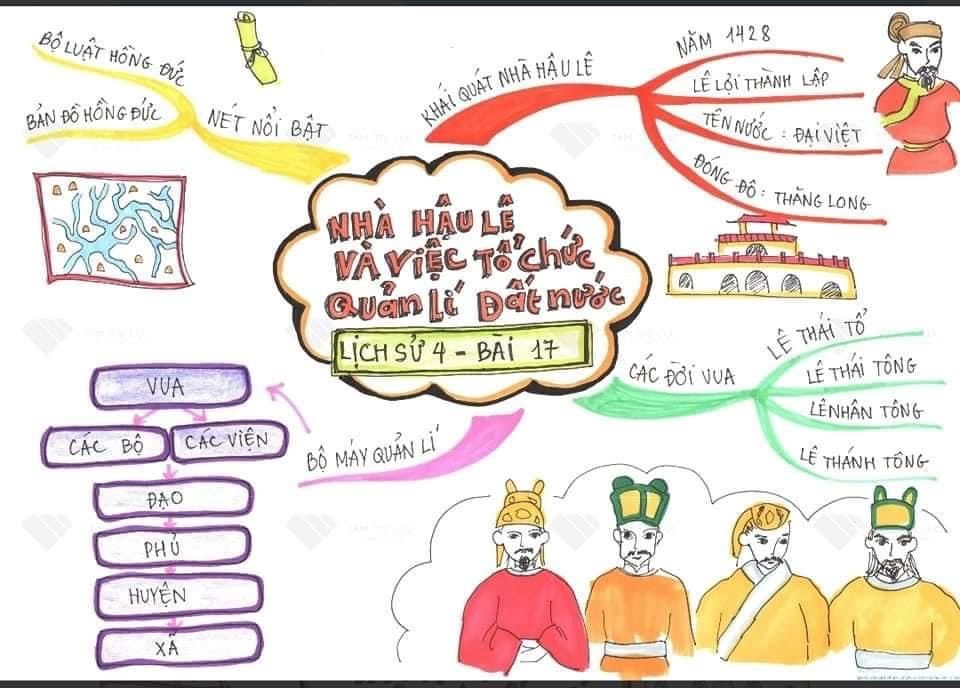 BỘ LUẬT HỒNG ĐỨC
BẢN ĐỒ HỒNG ĐỨC
NÉT NỔI BẬT
KHÁI QUÁT NHÀ HẬU LÊ
NĂM 1428
LÊ LỢI THÀNH LẬP
TÊN NƯỚC : ĐẠI VIỆT
ĐÓNG ĐÔ : THĂNG LONG
NHÀ HẬU LÊ
VÀ VIỆC TỔ CHỨC
QUẢN LÍ ĐẤT NƯỚC
LỊCH SỬ 4 - BÀI 17
CÁC ĐỜI VUA
LÊ THÁI TỔ
LÊ THÁI TÔNG
LÊ NHÂN TÔNG
LÊ THÁNH TÔNG
BỘ MÁY QUẢN LÍ
VUA
CÁC BỘ
CÁC VIỆN
ĐẠO
PHỦ
HUYỆN
XÃ